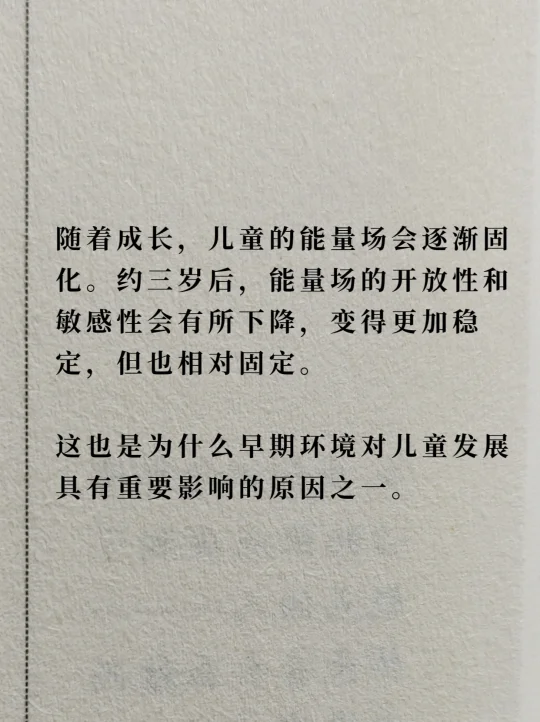 随着成长，儿童的能量场会逐渐固
化。约三岁后，能量场的开放性和
敏感性会有所下降，变得更加稳
定，但也相对固定。
这也是为什么早期环境对儿童发展
具有重要影响的原因之一。